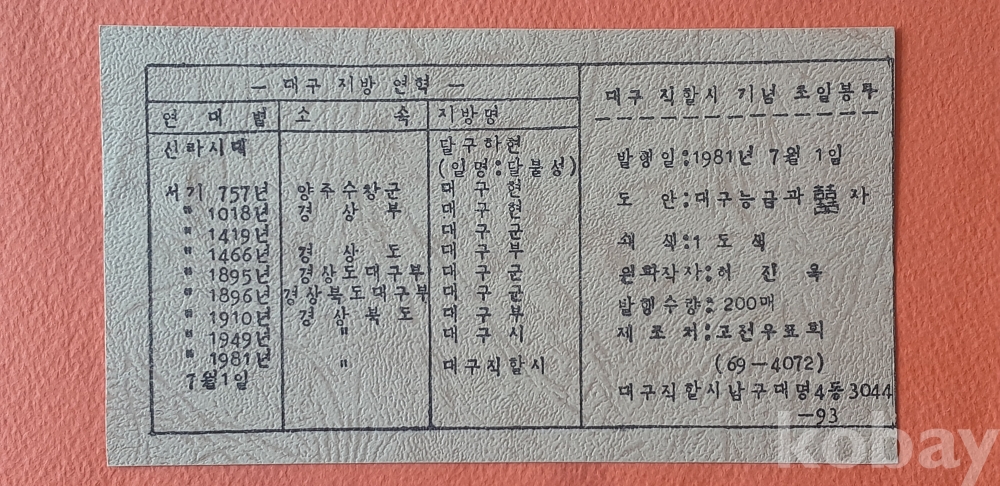 — 대구 지방 연혁 —
연 대 별 소 속 지방명
신라시대 달구하현
(일명:달불성)
서기 757년 양주수창군 대 구 현
" 1018년 경 상 부 대 구 현
" 1419년 대 구 군
" 1466년 경 상 도 대 구 부
" 1895년 경상도대구부 대 구 군
" 1896년 경상북도대구부 대 구 군
" 1910년 경 상 북 도 대 구 부
" 1949년 " 대 구 시
" 1981년 " 대구직할시
7월1일
대구 직할시 기념 초일봉투
발행일:1981년 7월 1일
도 안:대구능금과 囍 자
쇄 색:1 도 색
원화작자:허 진 욱
발행수량:200매
제 조 처:고전우표회
(69-4072)
대구직할시남구대명4동3044
-93
kobay